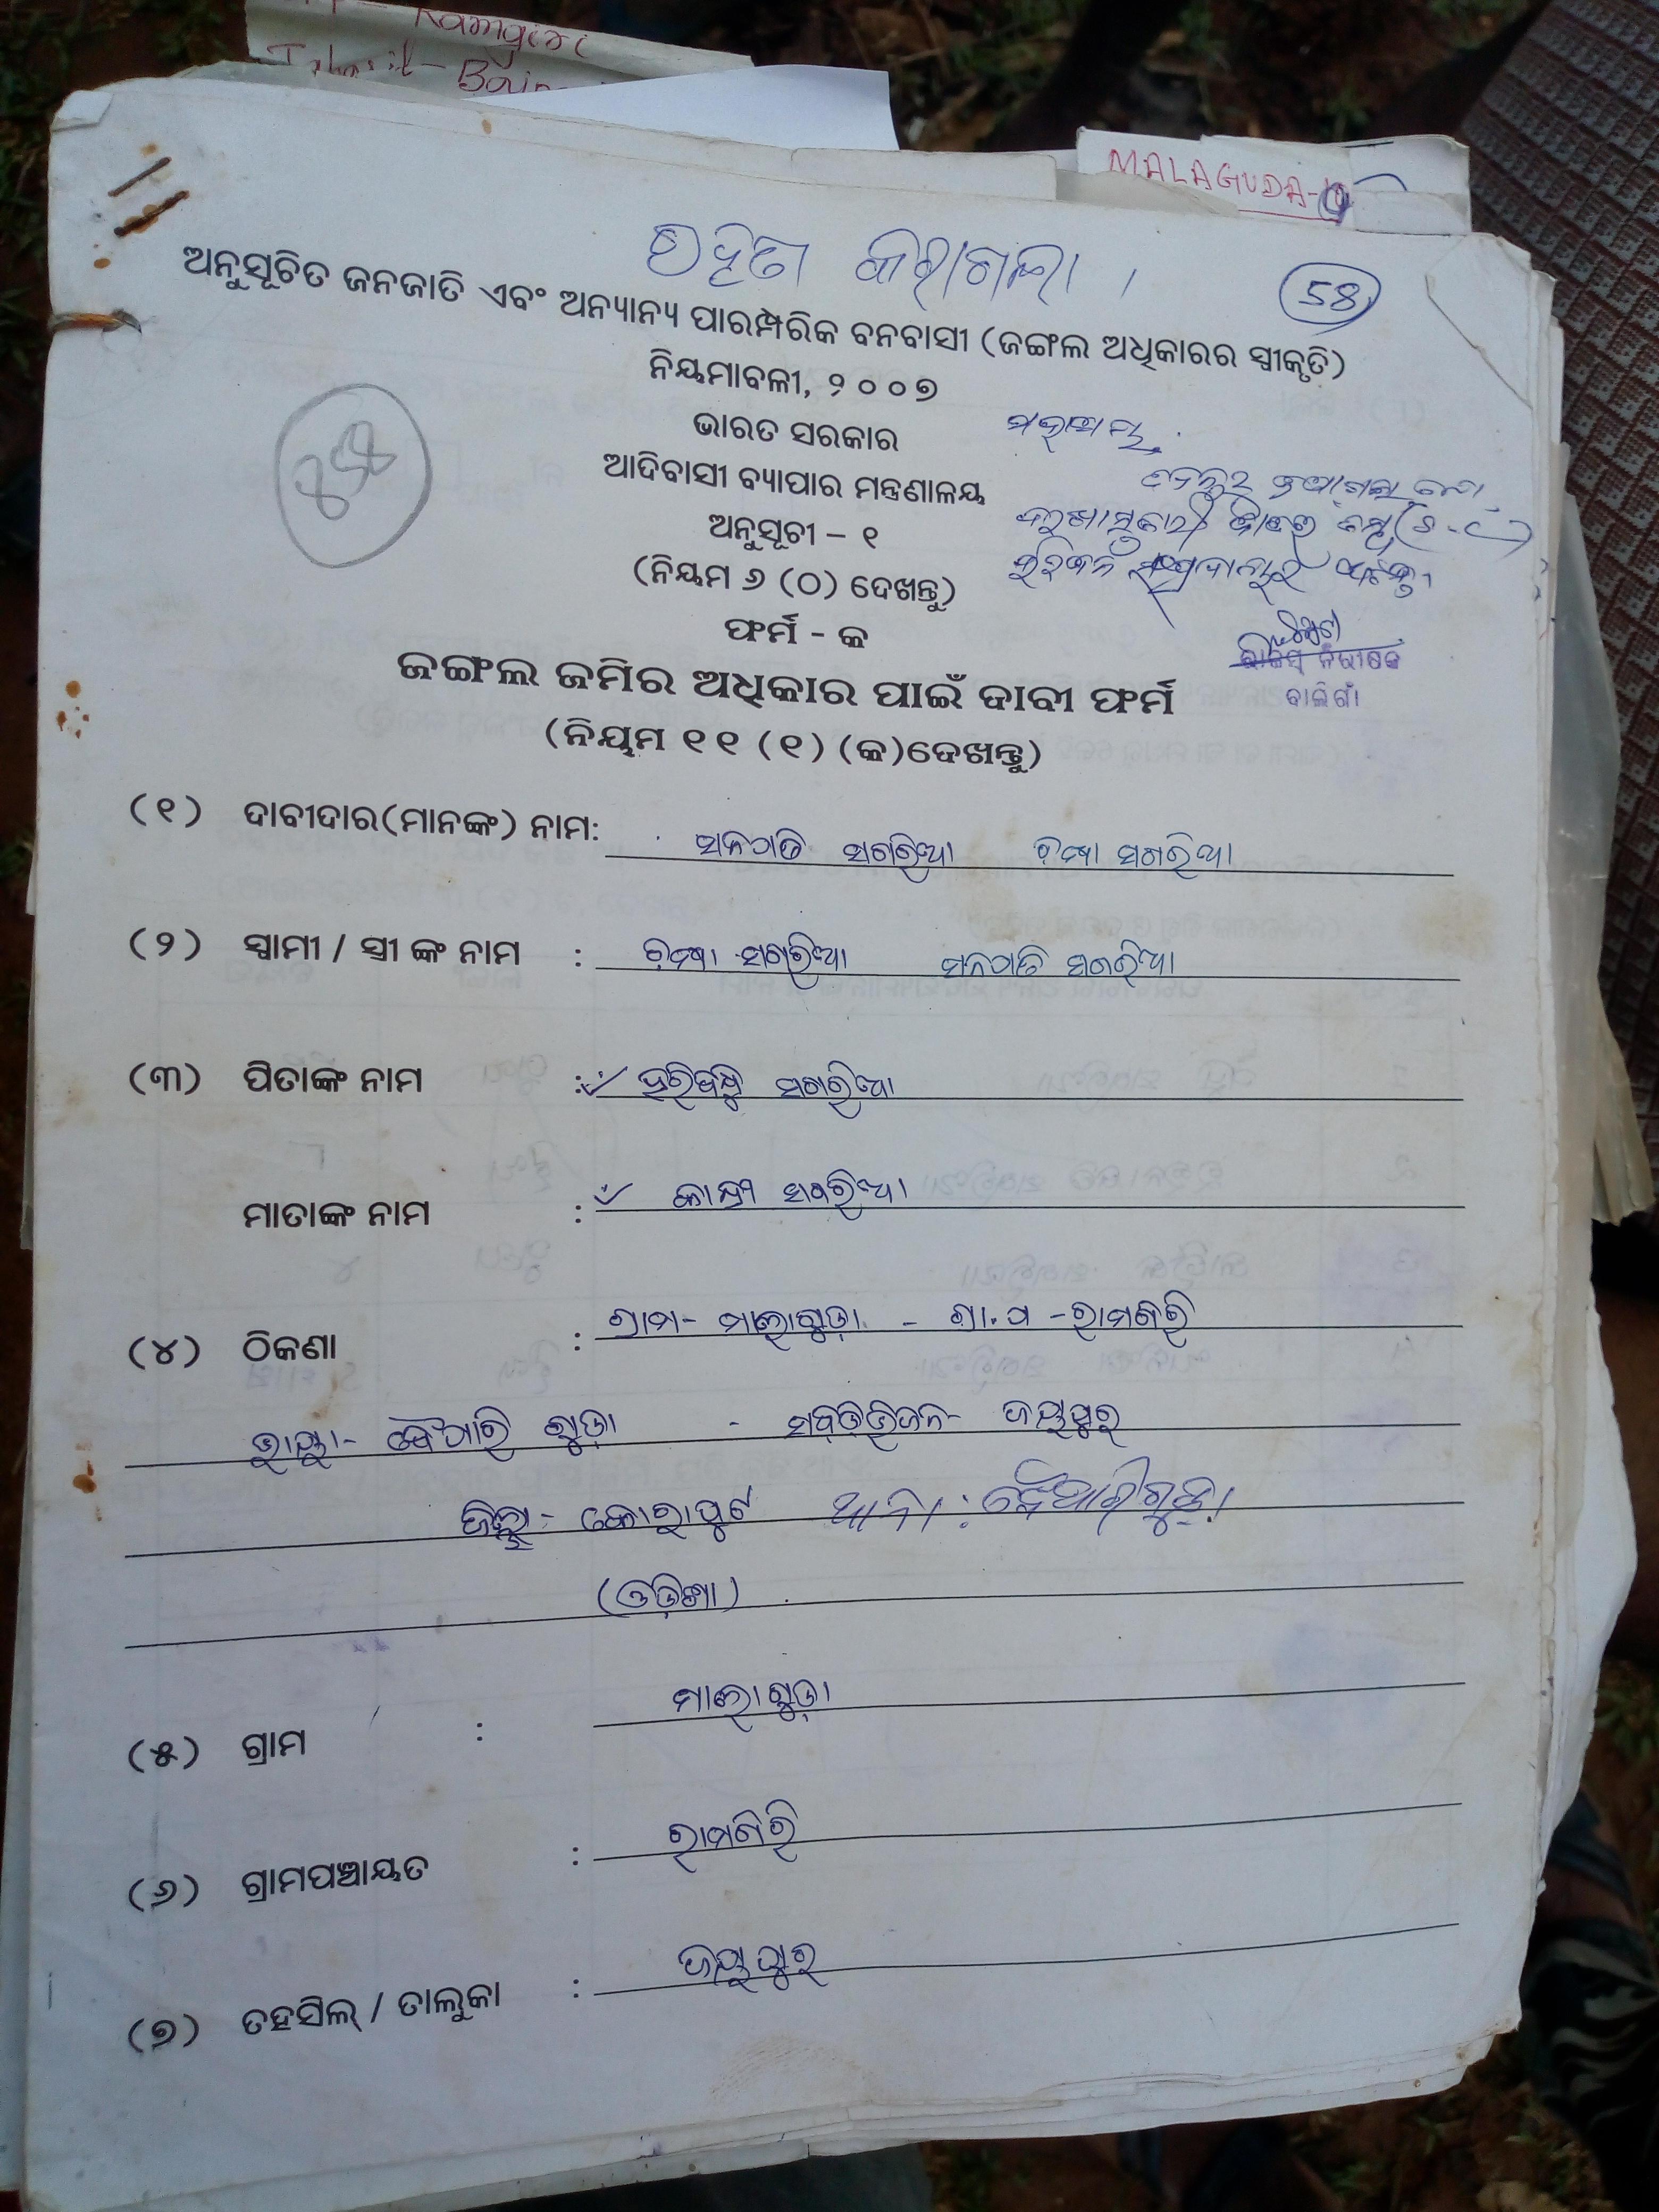 Ramgiri
Tahasil - Boip
MALAGUDA-10
58
ଅନୁସୂଚିତ ଜନଜାତି ଏବଂ ଅନ୍ୟାନ୍ୟ ପାରମ୍ପରିକ ବନବାସୀ (ଜଙ୍ଗଲ ଅଧିକାରର ସ୍ୱୀକୃତି)
ନିୟମାବଳୀ, ୨୦୦୭
ଭାରତ ସରକାର
ଆଦିବାସୀ ବ୍ୟାପାର ମନ୍ତ୍ରଣାଳୟ
ଅନୁସୂଚୀ – ୧
(ନିୟମ ୬ (୦) ଦେଖନ୍ତୁ)
ଫର୍ମ - କ
ରାଜସ୍ୱ ନିରୀକ୍ଷକ
ବାଲିଗାଁ
ଜଙ୍ଗଲ ଜମିର ଅଧିକାର ପାଇଁ ଦାବୀ ଫର୍ମ
(ନିୟମ ୧୧ (୧) (କ)ଦେଖନ୍ତୁ)
(୧) ଦାବୀଦାର(ମାନଙ୍କ) ନାମ: ସନଗତି ସଗରିଆ ଚମ୍ପା ସଗରିଆ
(୨) ସ୍ୱାମୀ / ସ୍ତ୍ରୀ ଙ୍କ ନାମ : ଚମ୍ପା ସଗରିଆ ସନଗତି ସଗରିଆ
(୩) ପିତାଙ୍କ ନାମ : ହରିବନ୍ଧୁ ସଗରିଆ
ମାତାଙ୍କ ନାମ : ସଗରିଆ
(୪) ଠିକଣା : ଗ୍ରାମ- ମାଲାଗୁଡ଼ା - ଗ୍ରା.ପ -ରାମଗିରି
ଭାୟା- ବୈପାରିଗୁଡ଼ା - ସବ୍‌ଡିଭିଜନ- ଜୟପୁର
ଜିଲ୍ଲା- କୋରାପୁଟ ଥାନା: ବୈପାରୀଗୁଡ଼ା
(ଓଡ଼ିଶା)
(୫) ଗ୍ରାମ : ମାଲାଗୁଡ଼ା
(୬) ଗ୍ରାମପଞ୍ଚାୟତ : ରାମଗିରି
(୭) ତହସିଲ୍ / ତାଲୁକା : ଜୟପୁର